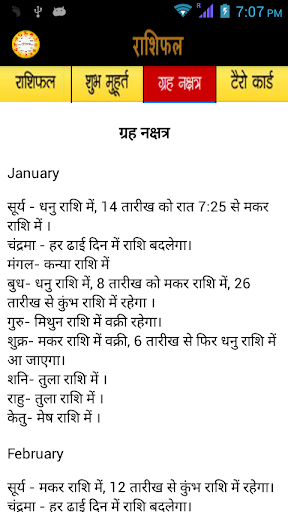 R 7:07 PM
राशिफल
राशिफल शुभ मुहूर्त ग्रह नक्षत्र टैरो कार्ड
ग्रह नक्षत्र
January
सूर्य - धनु राशि में, 14 तारीख को रात 7:25 से मकर
राशि में ।
चंद्रमा - हर ढाई दिन में राशि बदलेगा।
मंगल- कन्या राशि में
बुध- धनु राशि में, 8 तारीख को मकर राशि में, 26
तारीख से कुंभ राशि में रहेगा ।
गुरु- मिथुन राशि में वक्री रहेगा।
शुक्र- मकर राशि में वक्री, 6 तारीख से फिर धनु राशि में
आ जाएगा।
शनि- तुला राशि में ।
राहु- तुला राशि में ।
केतु- मेष राशि में ।
February
सूर्य - मकर राशि में, 12 तारीख से कुंभ राशि में रहेगा।
चंद्रमा - हर ढाई दिन में राशि बदलेगा।